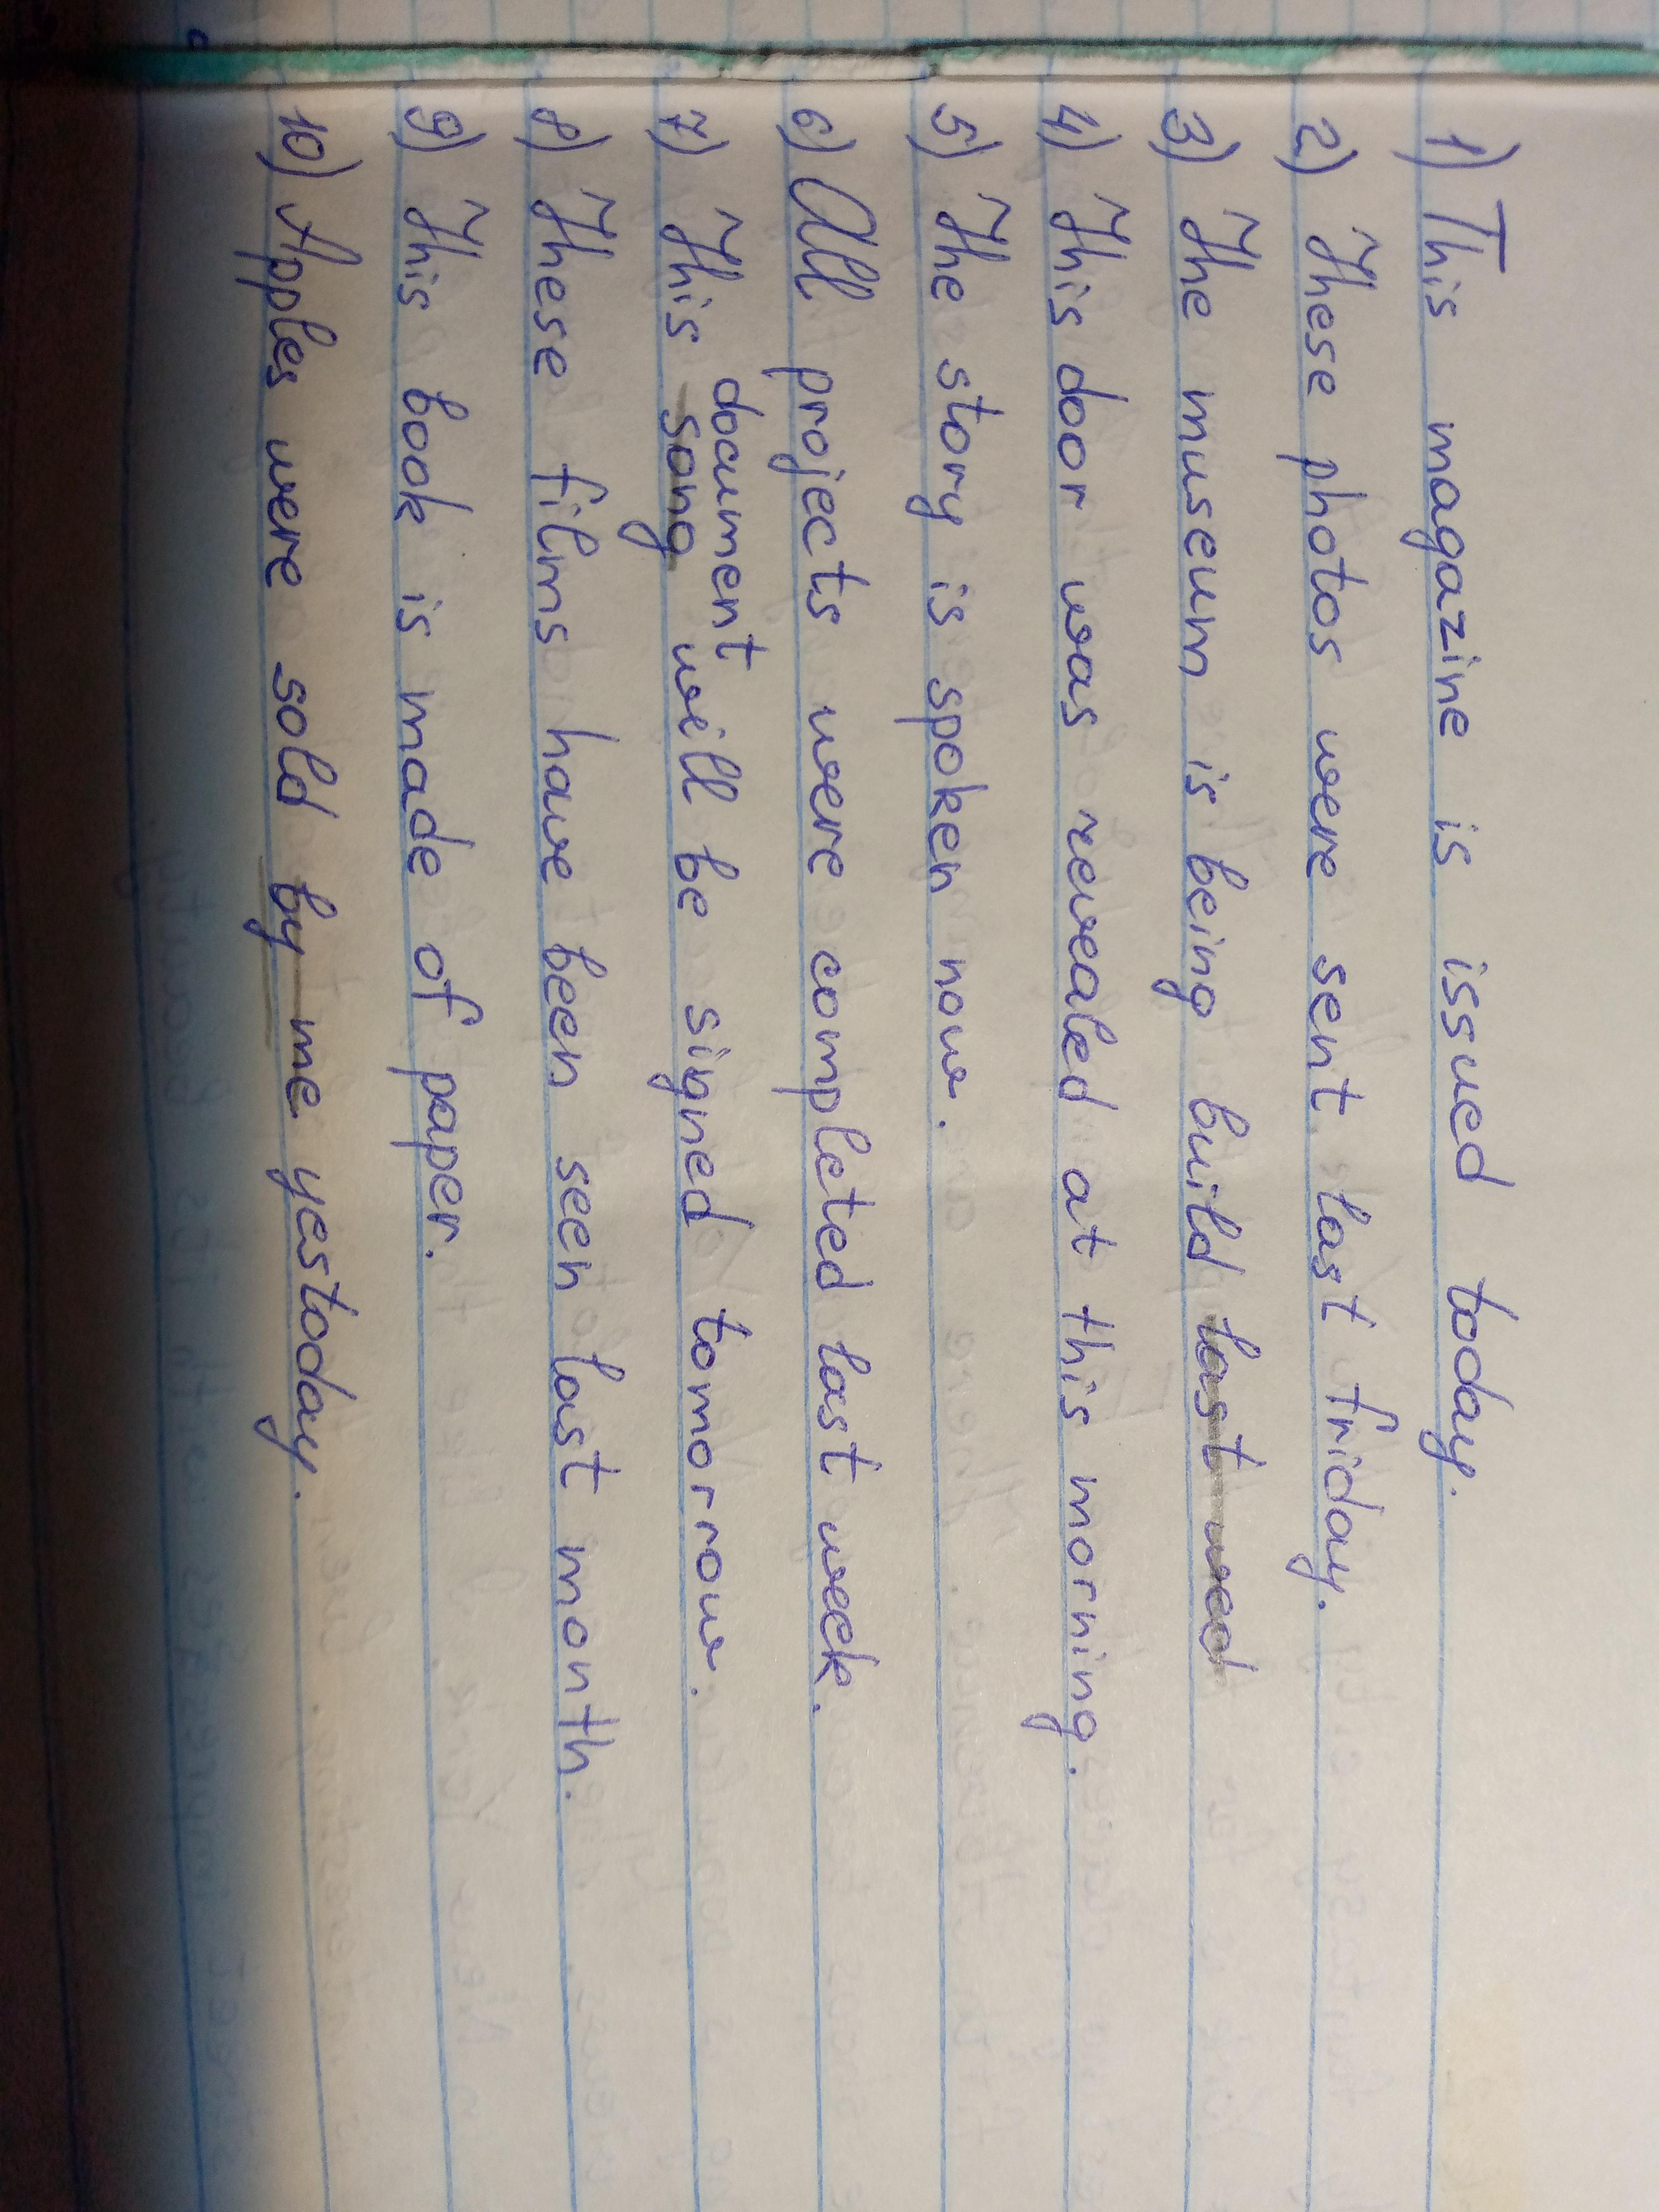 1) This magazine is issued today.
2) These photos were sent last friday.
3) The museum is being build last wed
4) This door was revealed at this morning.
5) The story is spoken now.
6) All projects were completed last week.
document
7) This song will be signed tomorrow.
8) These films have been seen last month.
9) This book is made of paper.
10) Apples were sold by me yestoday.